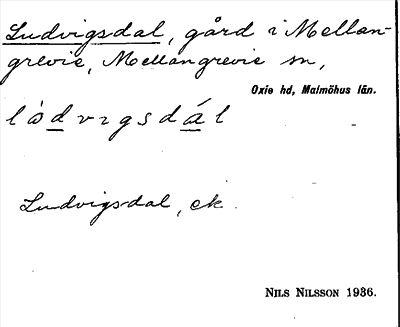 Ludvigsdal, gård i Mellan-
grevie, Mellangrevie sn,
Oxie hd, Malmöhus län.
Ludvigsdal, ek.
NILS NILSSON 1936.